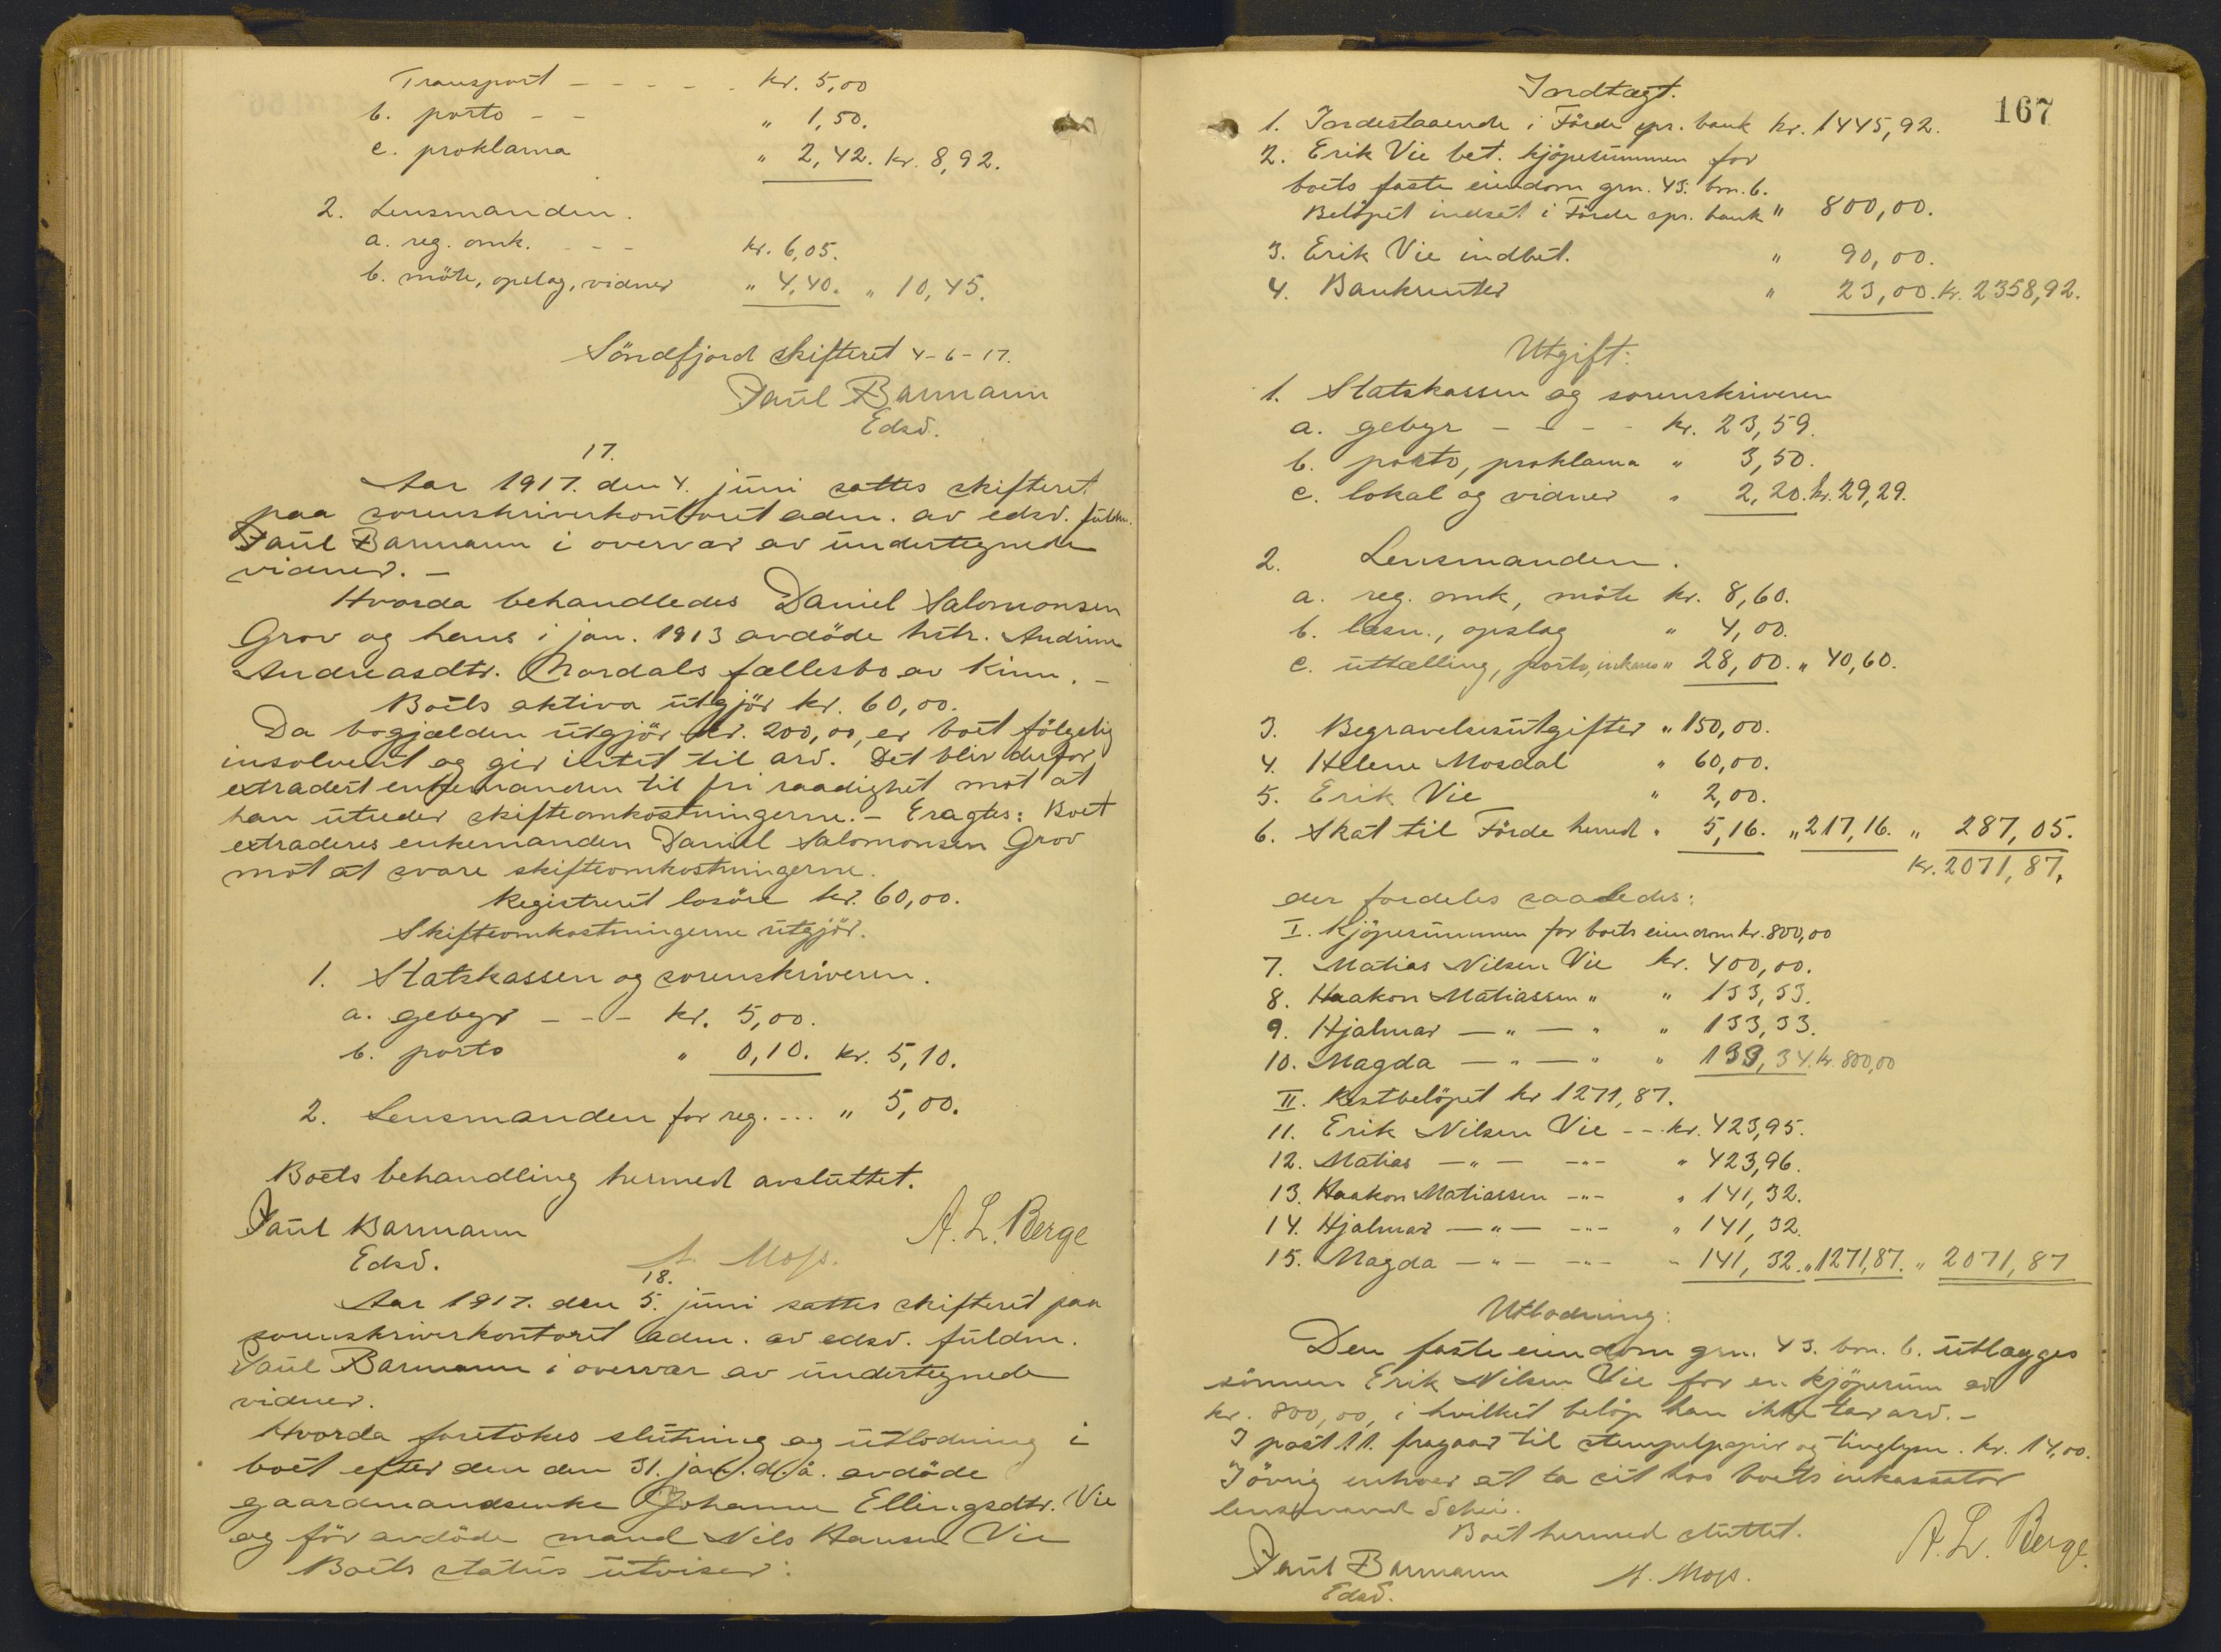 Transport - - - - - kr. 5,00
b. porto - - " 1,50.
c. proklama " 2,42. kr. 8,92.
2. Lensmanden.
a. reg. omk. - - - kr. 6,05.
b. möte, opslag, vidner " 4,40. " 10,45.
Söndfjord skifteret 4-6-17.
Paul Barmann
Edsv.
17.
Aar 1917. den 4. juni sattes skifteret
paa sorenskriverkontoret adm. av edsv. fuldm.
Paul Barmann i overvær av undertegnede
vidner. -
Hvorda behandledes Daniel Salomonsen
Grov og hans i jan. 1913 avdöde hstr. Andrine
Andreasdtr. Nordals fællesbo av Kinn. -
Boets aktiva utgjör kr. 60,00.
Da bogjælden utgjör kr. 200,00, er boet fölgelig
insolvent og gir intet til arv. Det blir derfor
extradert enkemanden til fri raadighet mot at
han utreder skifteomkostningerne. - Eragtes: Boet
extraderes enkemanden Daniel Salomonsen Grov
mot at svare skifteomkostningerne.
Registreret lösöre kr. 60,00.
Skifteomkostningerne utgjör.
1. Statskassen og sorenskriveren.
a. gebyr - - - kr. 5,00.
b. porto " 0,10. kr. 5,10.
2. Lensmanden for reg. ... " 5,00.
Boets behandling hermed avsluttet.
Paul Barmann A. L. Berge
Edsv. A. Moss.
18.
Aar 1917. den 5. juni sattes skifteret paa
sorenskriverkontoret adm. av edsv. fuldm.
Paul Barmann i overvær av undertegnede
vidner.
Hvorda foretokes slutning og utlodning i
boet efter den den 31. jan. d.å. avdöde
gaardmandsenke Johanne Ellingsdtr. Vie
og för avdöde mand Nils Hansen Vie
Boets status utviser:
167
Indtægt.
1. Indestaaende i Förde spr. bank kr. 1445,92.
2. Erik Vie bet. kjöpesummen for
boets faste eiendom grn. 43. brn. 6.
Belöpet indsat i Förde spr. bank " 800,00.
3. Erik Vie indbet. " 90,00.
4. Bankrenter " 23,00. kr. 2358,92.
Utgift:
1. Statskassen og sorenskriveren
a. gebyr - - - - kr. 23,59.
b. porto, proklama " 3,50.
c. lokal og vidner " 2,20. kr. 29,29.
2. Lensmanden.
a. reg. omk, möte kr. 8,60.
b. læsn., opslag " 4,00.
c. uttælling, porto, inkasso " 28,00. " 40,60.
3. Begravelsesutgifter " 150,00.
4. Helene Mosdal " 60,00.
5. Erik Vie " 2,00.
6. Skat til Förde herred " 5,16. " 217,16. " 287,05.
kr. 2071,87.
der fordeles saaledes:
I. Kjöpesummen for boets eiendom kr. 800,00
7. Matias Nilsen Vie kr. 400,00.
8. Haakon Matiassen " " 133,33.
9. Hjalmar - " - " " 133,33.
10. Magda - " - " " 133,34. kr. 800,00
II. Restbelöpet kr 1271,87.
11. Erik Nilsen Vie - - kr. 423,95.
12. Matias - " - - " - " 423,96.
13. Haakon Matiassen - " - " 141,32.
14. Hjalmar - " - - " - " 141,32.
15. Magda - " - - " - " 141,32. " 1271,87. " 2071,87
Utlodning:
Den faste eiendom grn. 43. brn. 6. utlægges
sönnen Erik Nilsen Vie for en kjöpesum av
kr. 800,00, i hvilket belöp han ikke tar arv. -
I post 11. fragaar til stempelpapir og tinglysn. kr. 14,00.
I övrig enhver at ta sit hos boets inkassator
lensmand Schei.
Boet hermed sluttet.
Paul Barmann A. Moss. A. L. Berge.
Edsv.